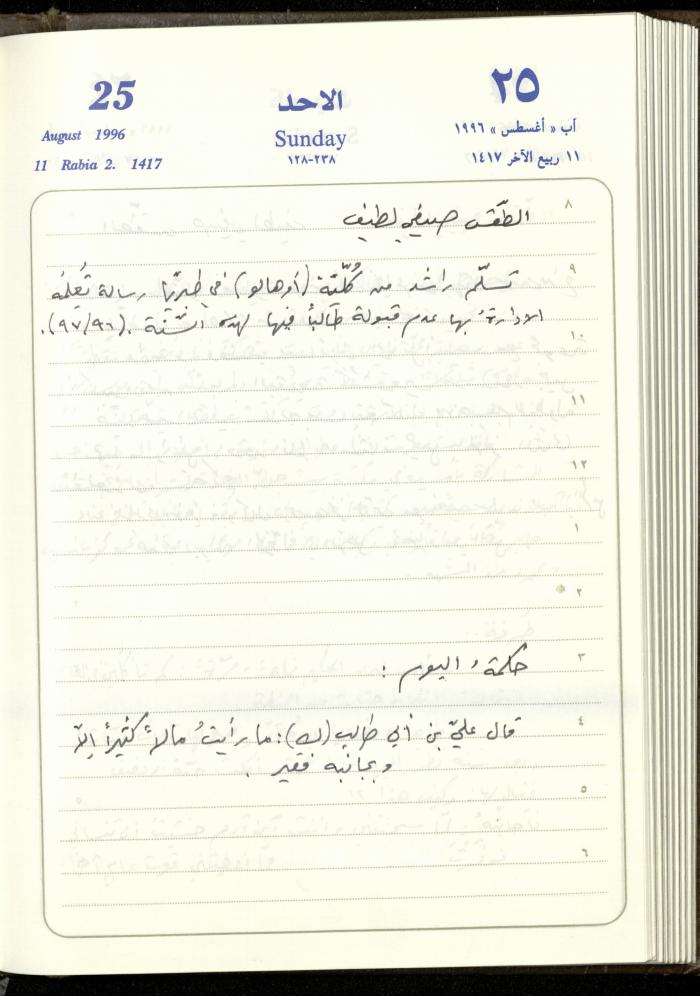 25
August 1996
11 Rabia 2. 1417
الاحد
Sunday
١٢٨-٢٣٨
٢٥
آب « أغسطس » ١٩٩٦
١١ ربيع الآخر ١٤١٧
٨
الطّقس صيفي لطيف
٩
تسلّم راشد من كُلّيّة (أوهالو) في طبريّا رسالة تُعلِمُه
الإدارةُ بها عدم قبولة طالباً فيها لهذه السَّنَة (٩٧/٩٦).
١٠
١١
١٢
١
٢
٣
حكمةُ اليوم :
٤
قال عليّ بن أبي طالب (ك): ما رأيتُ مالاً كثيراً إلاّ
وبجانبه فقير .
٥
٦